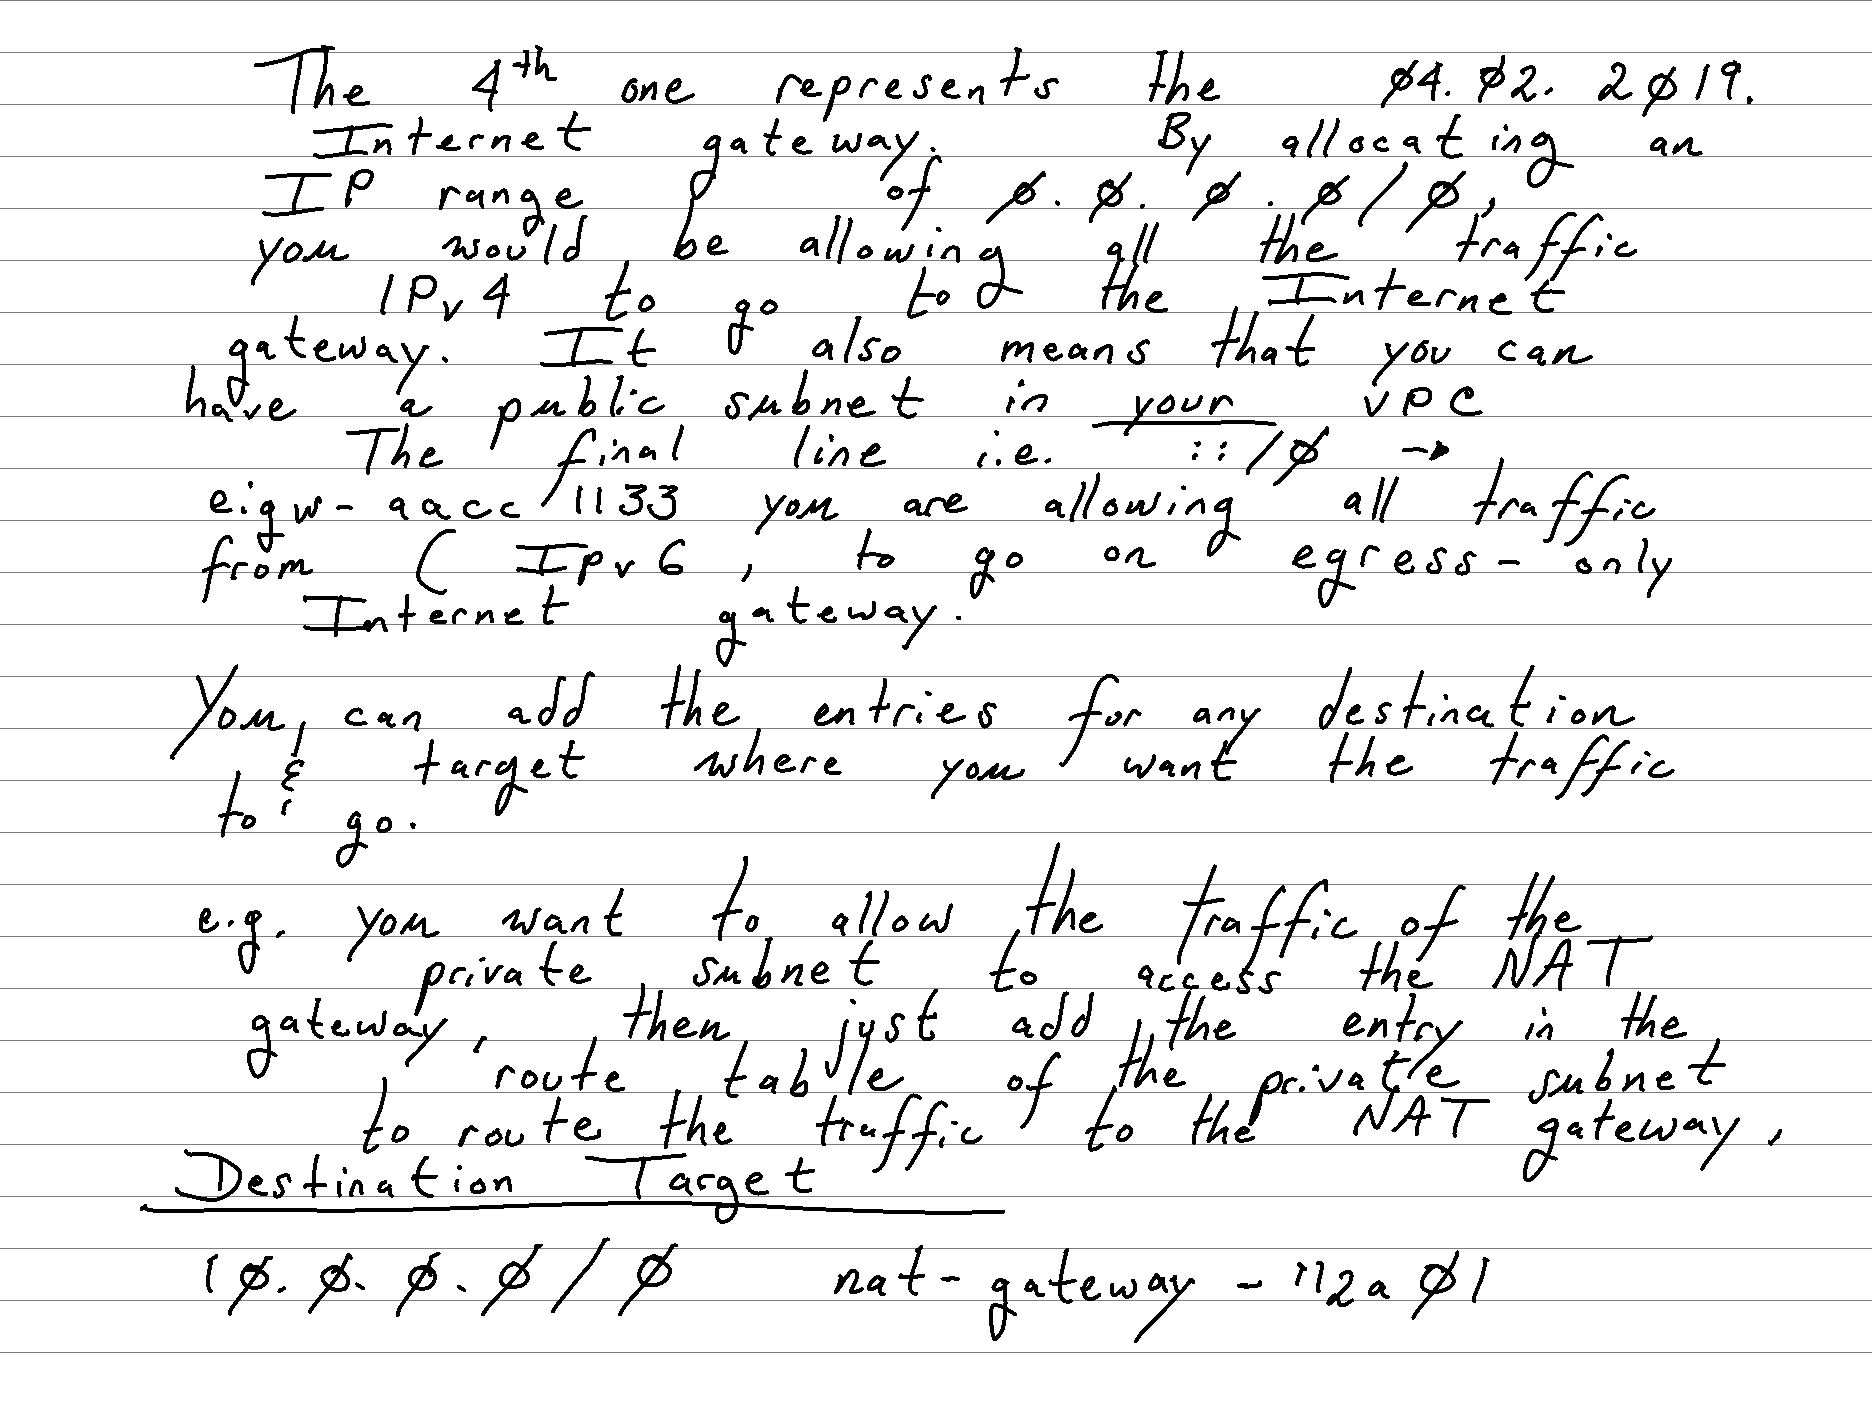 The 4th one represents the Ø4. Ø2. 2Ø19.
Internet gateway. By allocating an
IP range of Ø. Ø. Ø. Ø/Ø,
you would be allowing all the traffic
IPv4 to go to the Internet
gateway. It also means that you can
have a public subnet in your VPC
The final line i.e. ::/Ø →
eigw-aacc 1133 you are allowing all traffic
from ( Ipv6, to go on egress-only
Internet gateway.
You, can add the entries for any destination
& target where you want the traffic
to go.
e.g. you want to allow the traffic of the
private subnet to access the NAT
gateway, then just add the entry in the
route table of the private subnet
to route the traffic to the NAT gateway,
Destination Target
1Ø. Ø. Ø. Ø/Ø nat-gateway-112aØ1